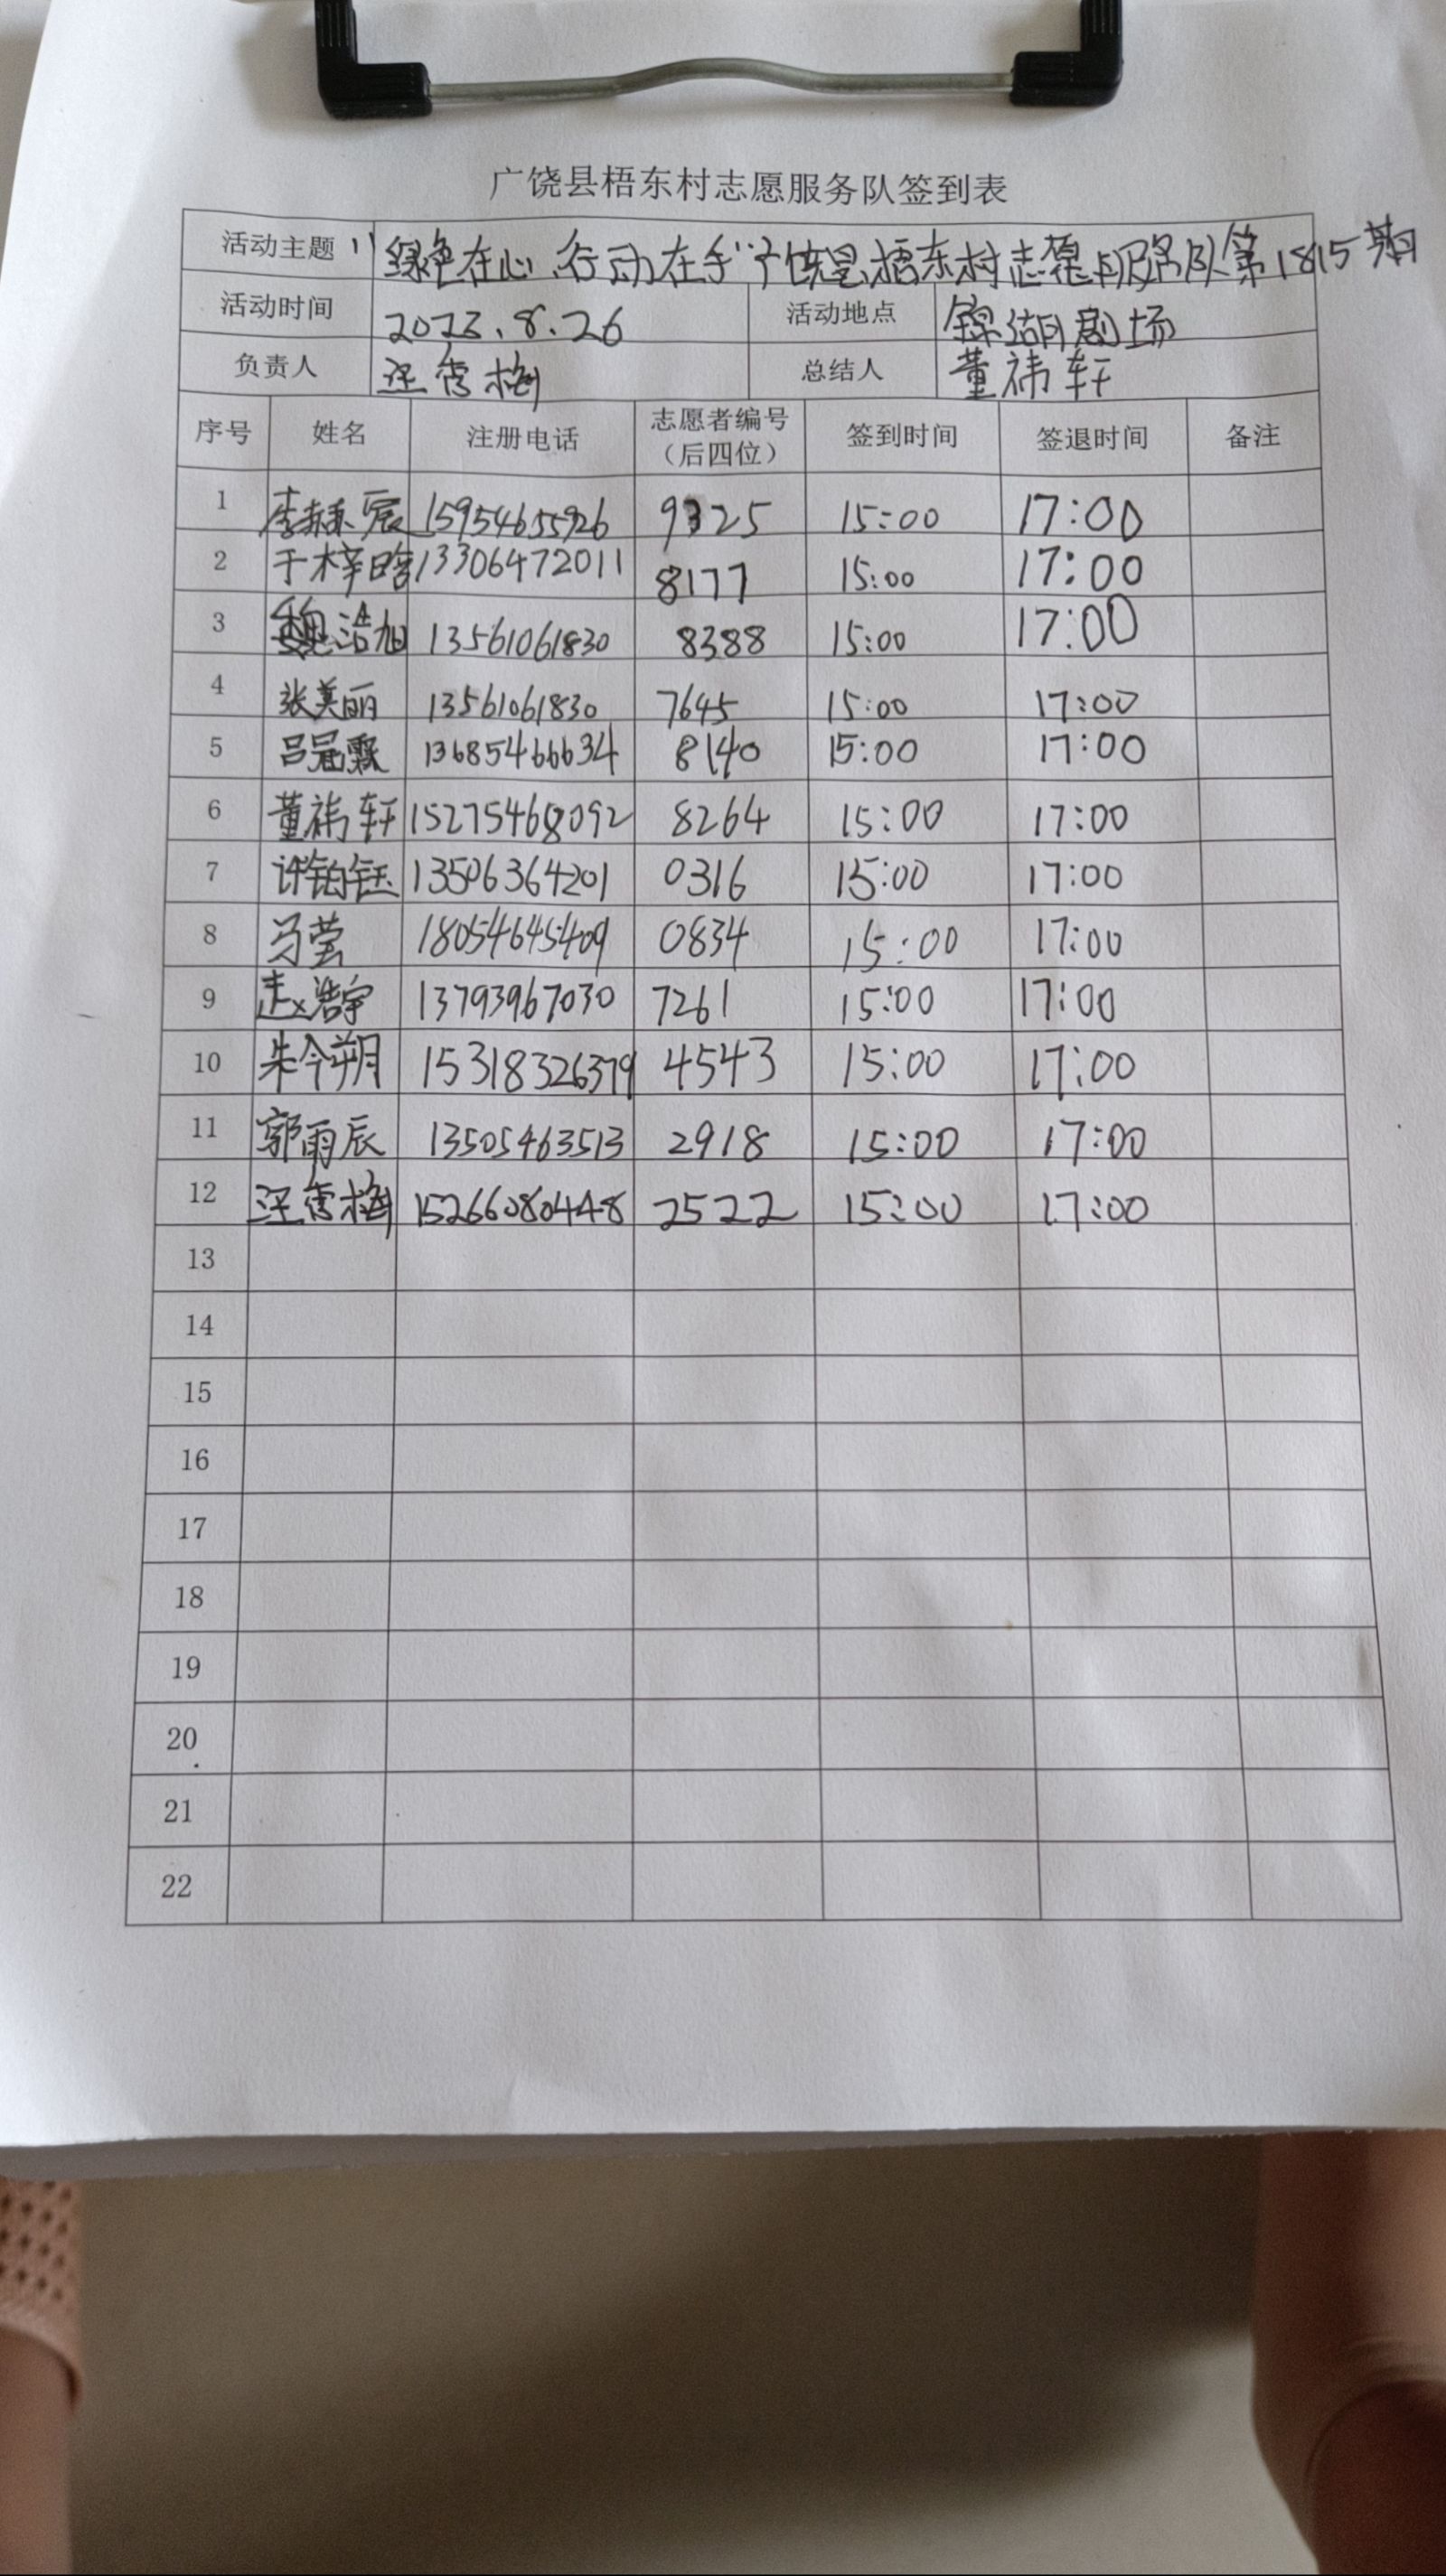 广饶县梧东村志愿服务队签到表
活动主题 "绿色在心,行动在手"广饶县梧东村志愿服务队第1815期
活动时间 2023.8.26 活动地点 锦湖剧场
负责人 汪雪梅 总结人 董祎轩
序号 姓名 注册电话 志愿者编号(后四位) 签到时间 签退时间 备注
1 李赫宸 15954655926 9325 15:00 17:00
2 于梓晗 13306472011 8177 15:00 17:00
3 魏浩旭 13561061830 8388 15:00 17:00
4 张美丽 13561061830 7645 15:00 17:00
5 吕冠霖 13685466634 8140 15:00 17:00
6 董祎轩 15275468092 8264 15:00 17:00
7 许铂钰 13506364201 0316 15:00 17:00
8 马莹 18054645409 0834 15:00 17:00
9 赵浩宇 13793967030 7261 15:00 17:00
10 朱令朔 15318326379 4543 15:00 17:00
11 郭雨辰 13505463513 2918 15:00 17:00
12 汪雪梅 15266080448 2522 15:00 17:00
13
14
15
16
17
18
19
20
21
22